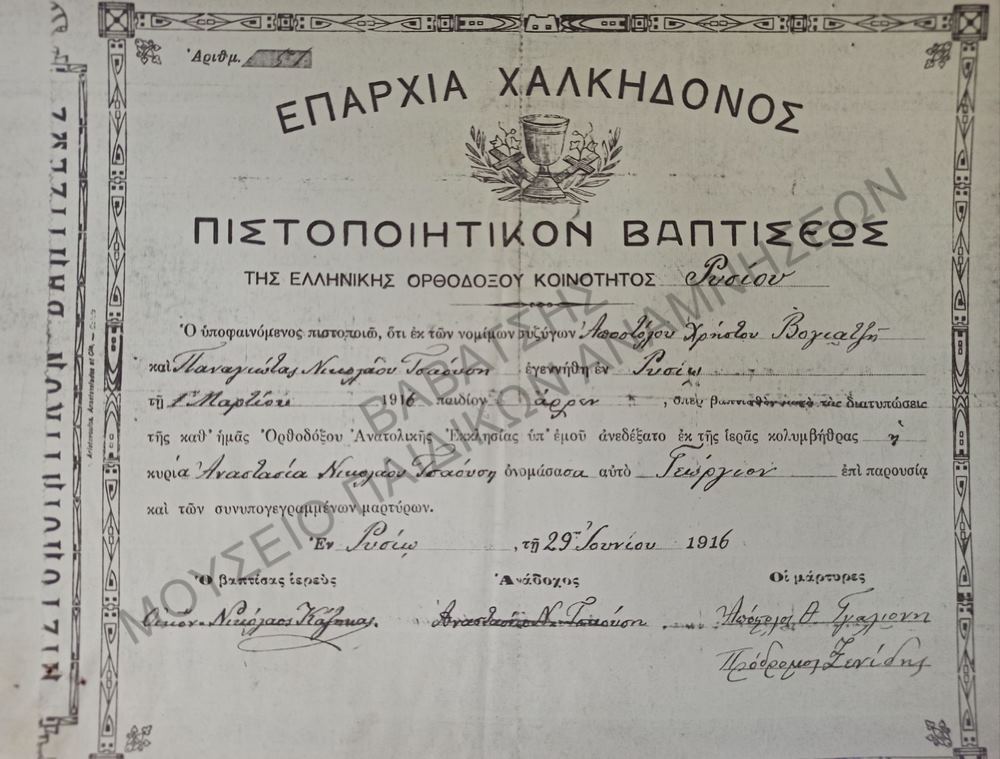 Ἀριθμ. 57
ΕΠΑΡΧΙΑ ΧΑΛΚΗΔΟΝΟΣ
ΠΙΣΤΟΠΟΙΗΤΙΚΟΝ ΒΑΠΤΙΣΕΩΣ
ΤΗΣ ΕΛΛΗΝΙΚΗΣ ΟΡΘΟΔΟΞΟΥ ΚΟΙΝΟΤΗΤΟΣ Ρυσίου
Ὁ ὑποφαινόμενος πιστοποιῶ, ὅτι ἐκ τῶν νομίμων συζύγων Ἀποστόλου Χρήστου Βογιατζῆ
καὶ Παναγιώτας Νικολάου Τσαούση ἐγεννήθη ἐν Ρυσίῳ
τῇ 1ῃ Μαρτίου 1916 παιδίον ἄρρεν, ὅπερ βαπτισθὲν κατὰ τὰς διατυπώσεις
τῆς καθ' ἡμᾶς Ὀρθοδόξου Ἀνατολικῆς Ἐκκλησίας ὑπ' ἐμοῦ ἀνεδέξατο ἐκ τῆς ἱερᾶς κολυμβήθρας ἡ
κυρία Ἀναστασία Νικολάου Τσαούση ὀνομάσασα αὐτὸ Γεώργιον ἐπὶ παρουσίᾳ
καὶ τῶν συνυπογεγραμμένων μαρτύρων.
Ἐν Ρυσίῳ, τῇ 29ῃ Ἰουνίου 1916
Ὁ βαπτίσας ἱερεὺς Ἀνάδοχος Οἱ μάρτυρες
Οἰκον. Νικόλαος Ἀναστασία Ν. Τσαούση Ἀπόστολος Θ.
Πρόδρομος Ξενίδης
ΠΙΣΤΟΠΟΙΗΤΙΚΟΝ ΒΑΠΤΙΣΕΩΣ
ΒΑΒΑΤΣΗΣ
ΜΟΥΣΕΙΟ ΠΑΙΔΙΚΩΝ ΑΝΑΜΝΗΣΕΩΝ